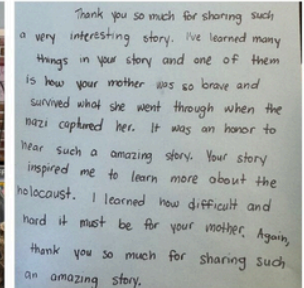 Thank you so much for sharing such
a very interesting story. I've learned many
things in your story and one of them
is how your mother was so brave and
survived what she went through when the
nazi captured her. It was an honor to
hear such a amazing story. Your story
inspired me to learn more about the
holocaust. I learned how difficult and
hard it must be for your mother. Again,
thank you so much for sharing such
an amazing story.